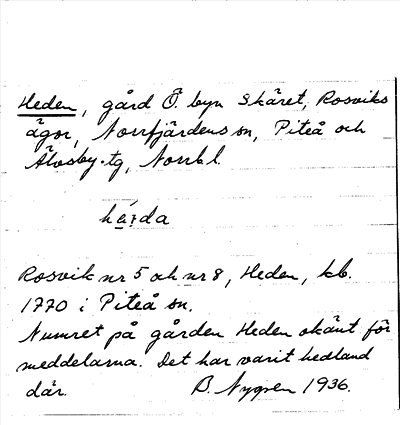 Heden, gård Ö. byn Skäret, Rosviks
ägor, Norrfjärdens sn, Piteå och
Älvsby. tg, Norrb. l.
Rosvik nr 5 och nr 8, Heden, kb.
1770 i Piteå sn.
Numret på gården Heden okänt för
meddelarna. Det har varit hedland
där. B. Nygren 1936.